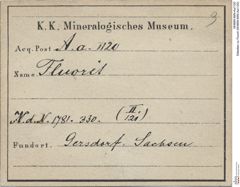 9
K. K. Mineralogisches Museum.
Acq. Post A.a. 1120
Name Fluorit
N.d.N. 1781. 330. (II/121)
Fundort. Gersdorf. Sachsen